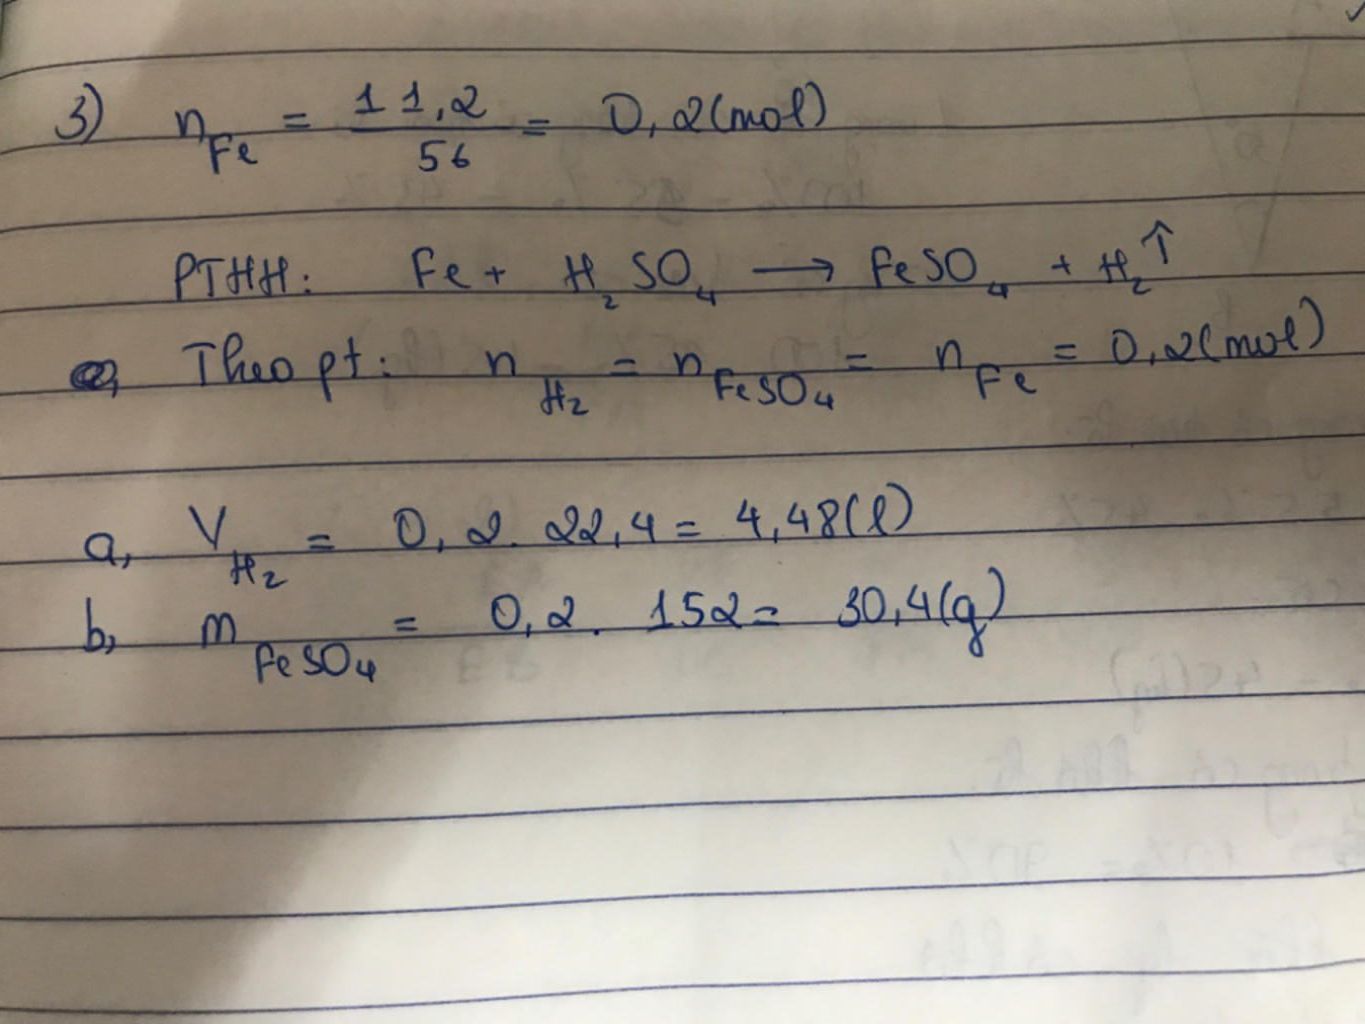 3) n Fe = 11,2 / 56 = 0,2 (mol)
PTHH: Fe + H₂SO₄ → FeSO₄ + H₂↑
Theo pt: n H₂ = n FeSO₄ = n Fe = 0,2 (mol)
a, V H₂ = 0,2 . 22,4 = 4,48 (l)
b, m FeSO₄ = 0,2 . 152 = 30,4 (g)